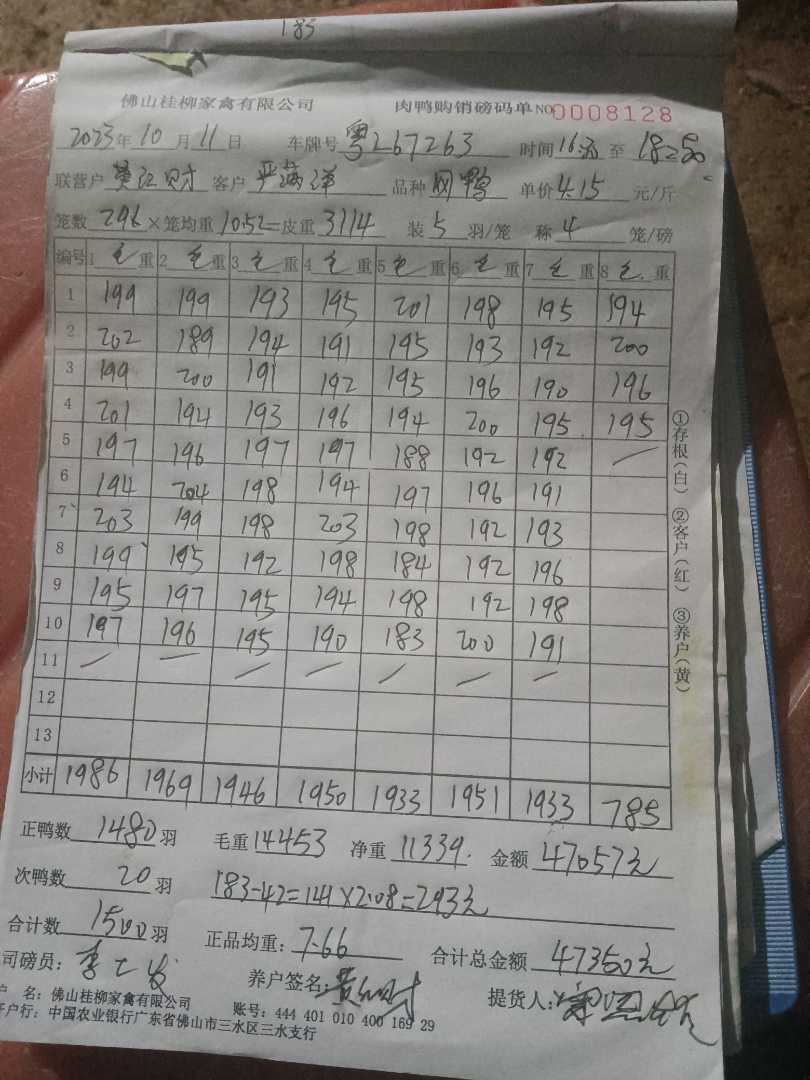 183
佛山桂柳家禽有限公司 肉鸭购销磅码单 NO 0008128
2023年10月11日 车牌号 粤Z67263 时间 至 18:50
联营户 客户 品种 单价 4.15 元/斤
笼数 296 × 笼均重 10.52 = 皮重 3114 装 5 羽/笼 称 4 笼/磅
编号 1 毛重 2 毛重 3 毛重 4 毛重 5 毛重 6 毛重 7 毛重 8 毛重
1 199 199 193 195 201 198 195 194
2 202 189 194 191 195 193 192 200
3 199 200 191 192 195 196 190 196
4 201 194 193 196 194 200 195 195
5 197 196 197 197 188 192 192
6 194 204 198 194 197 196 191
7 203 199 198 203 198 192 193
8 199 195 192 198 184 192 196
9 195 197 195 194 198 192 198
10 197 196 195 190 183 200 191
11
12
13
小计 1986 1969 1946 1950 1933 1951 1933 785
①存根(白) ②客户(红) ③养户(黄)
正鸭数 1480 羽 毛重 14453 净重 11339. 金额 47057元
次鸭数 20 羽 183-42=141×2.08=293元
合计数 1500 羽 正品均重: 7.66 合计总金额 47350元
司磅员: 养户签名: 提货人:
户 名: 佛山桂柳家禽有限公司 账号: 444 401 010 400 169 29
开户行: 中国农业银行广东省佛山市三水区三水支行